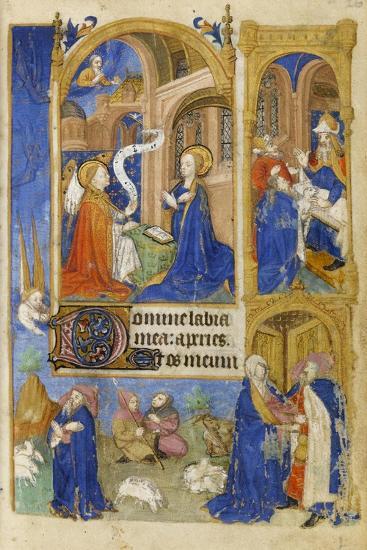 Domine labia
mea: apries.
Et os meum